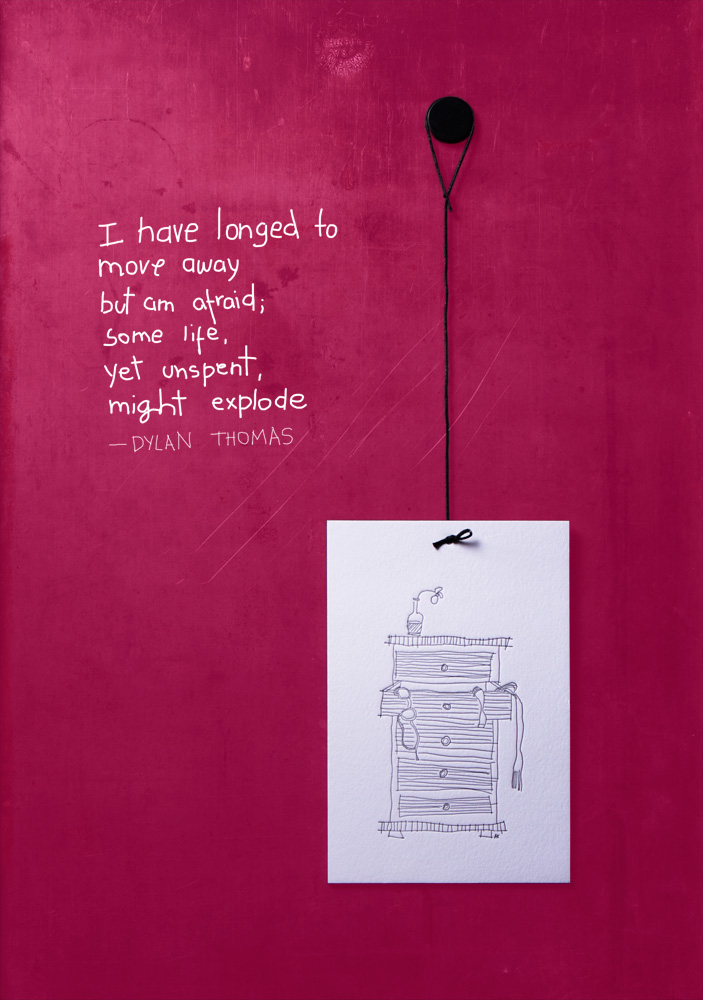 I have longed to
move away
but am afraid;
some life,
yet unspent,
might explode
—DYLAN THOMAS